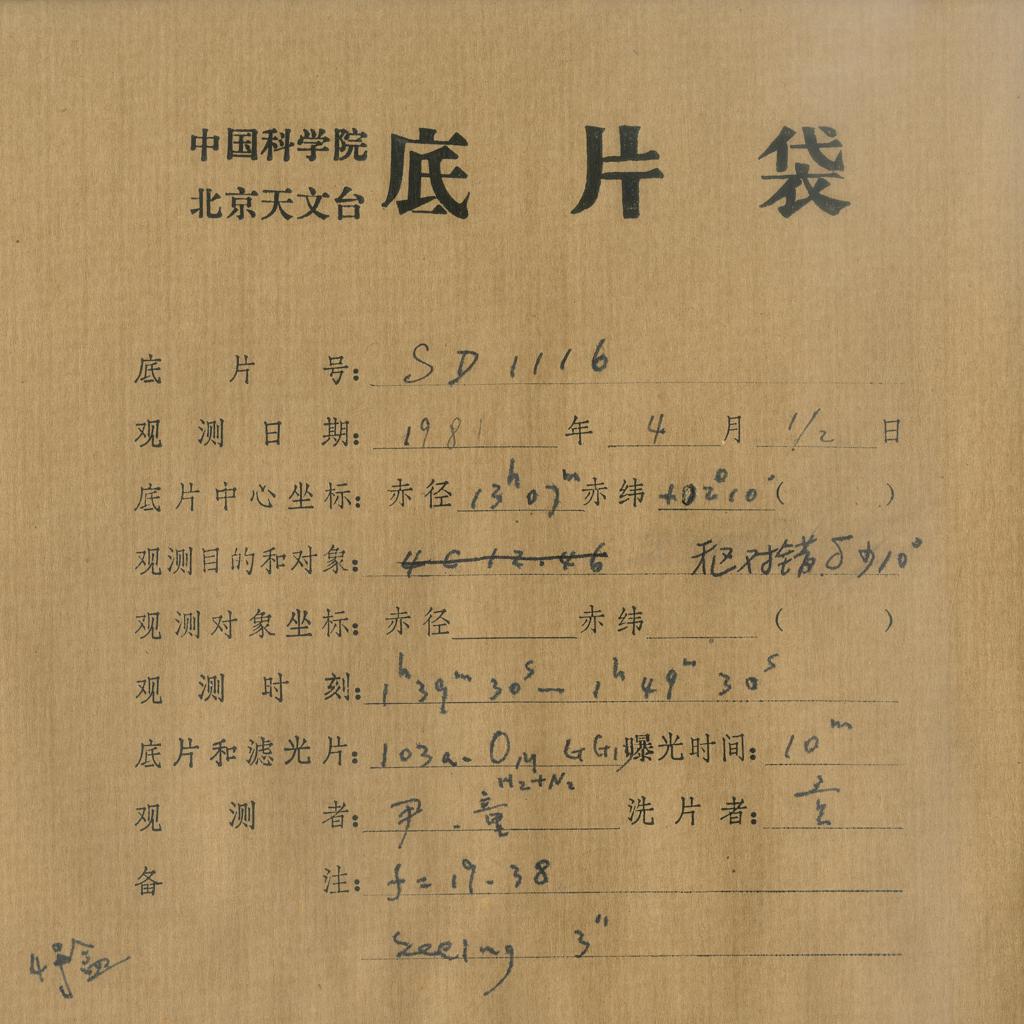 中国科学院
北京天文台
底片袋
底片号: SD1116
观测日期: 1981年4月1/2日
底片中心坐标: 赤径13h07m赤纬+02°10′( )
观测目的和对象: 4C12.46 天区对错δ少10°
观测对象坐标: 赤径 赤纬 ( )
观测时刻: 1h39m30s — 1h49m30s
底片和滤光片: 103a-O,H GG13曝光时间: 10m
H2+N2
观测者: 尹.童 洗片者:
备注: f=19.38
seeing 3″
4号盒